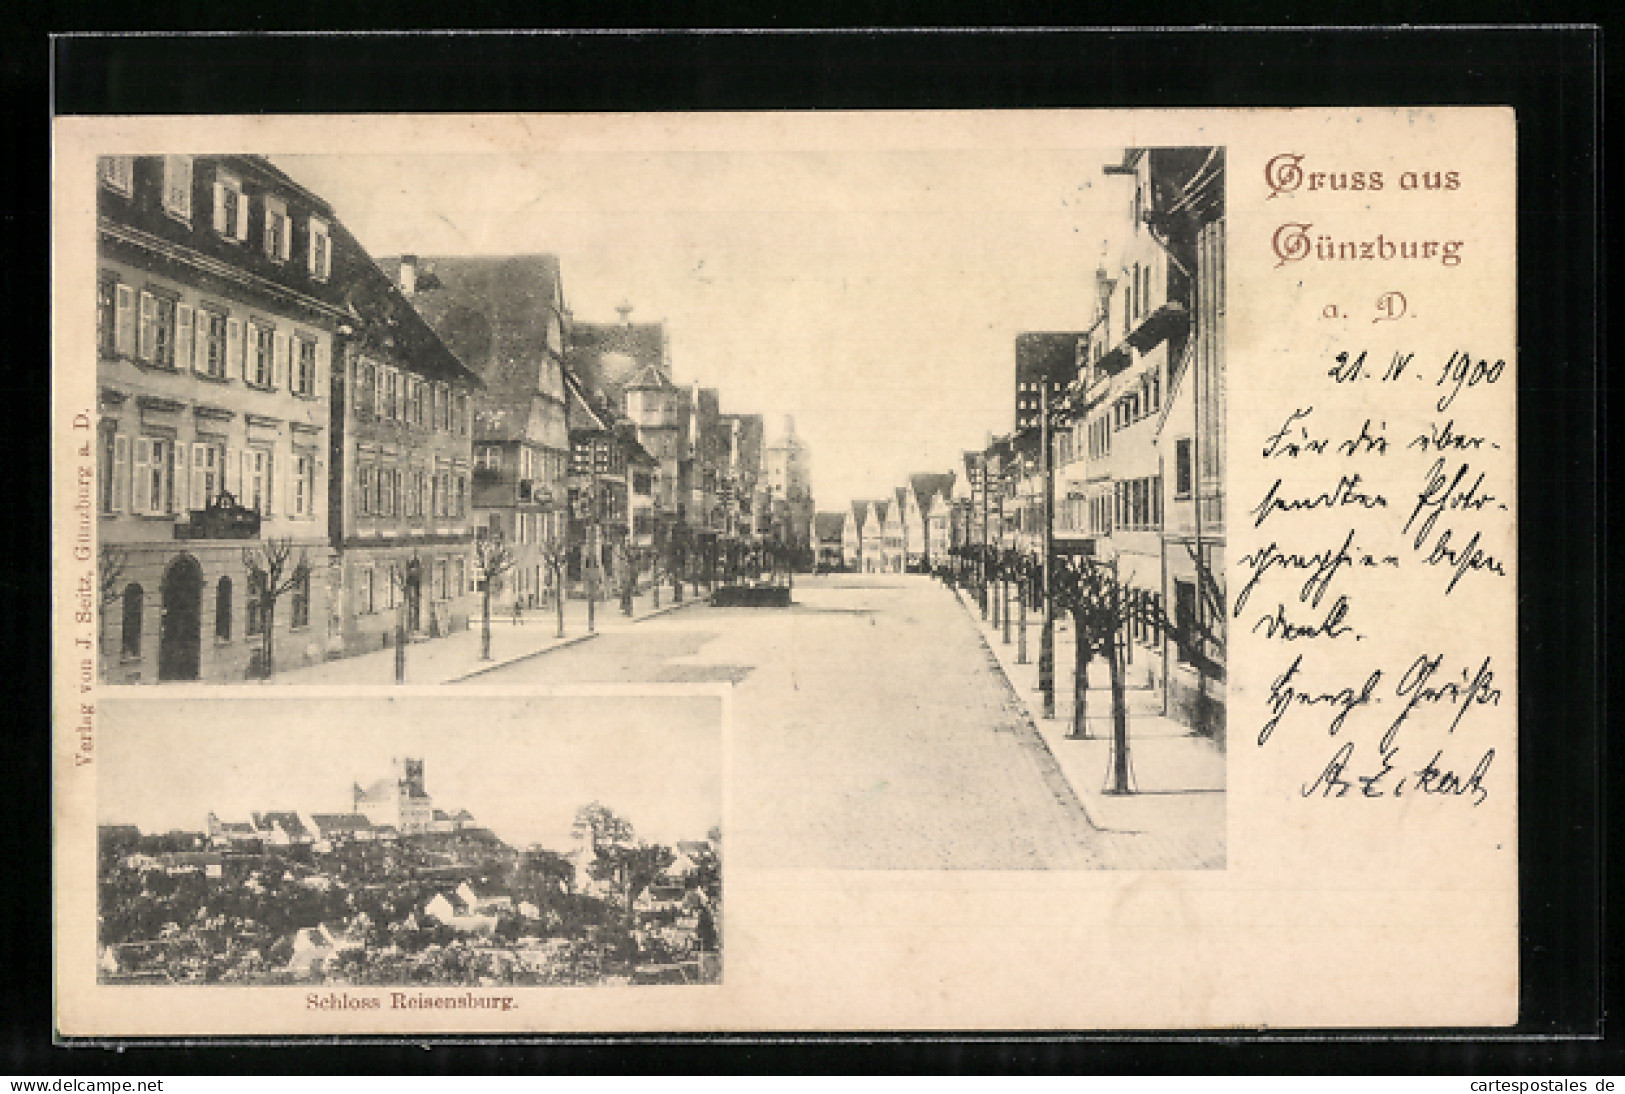 Gruss aus
Günzburg
a. D.
21. IV. 1900
Für die über-
sandten Photo-
graphien besten
Dank.
Herzl. Grüße
A. Eckert
Verlag von J. Seitz, Günzburg a. D.
Schloss Reisensburg.
www.delcampe.net
cartespostales de